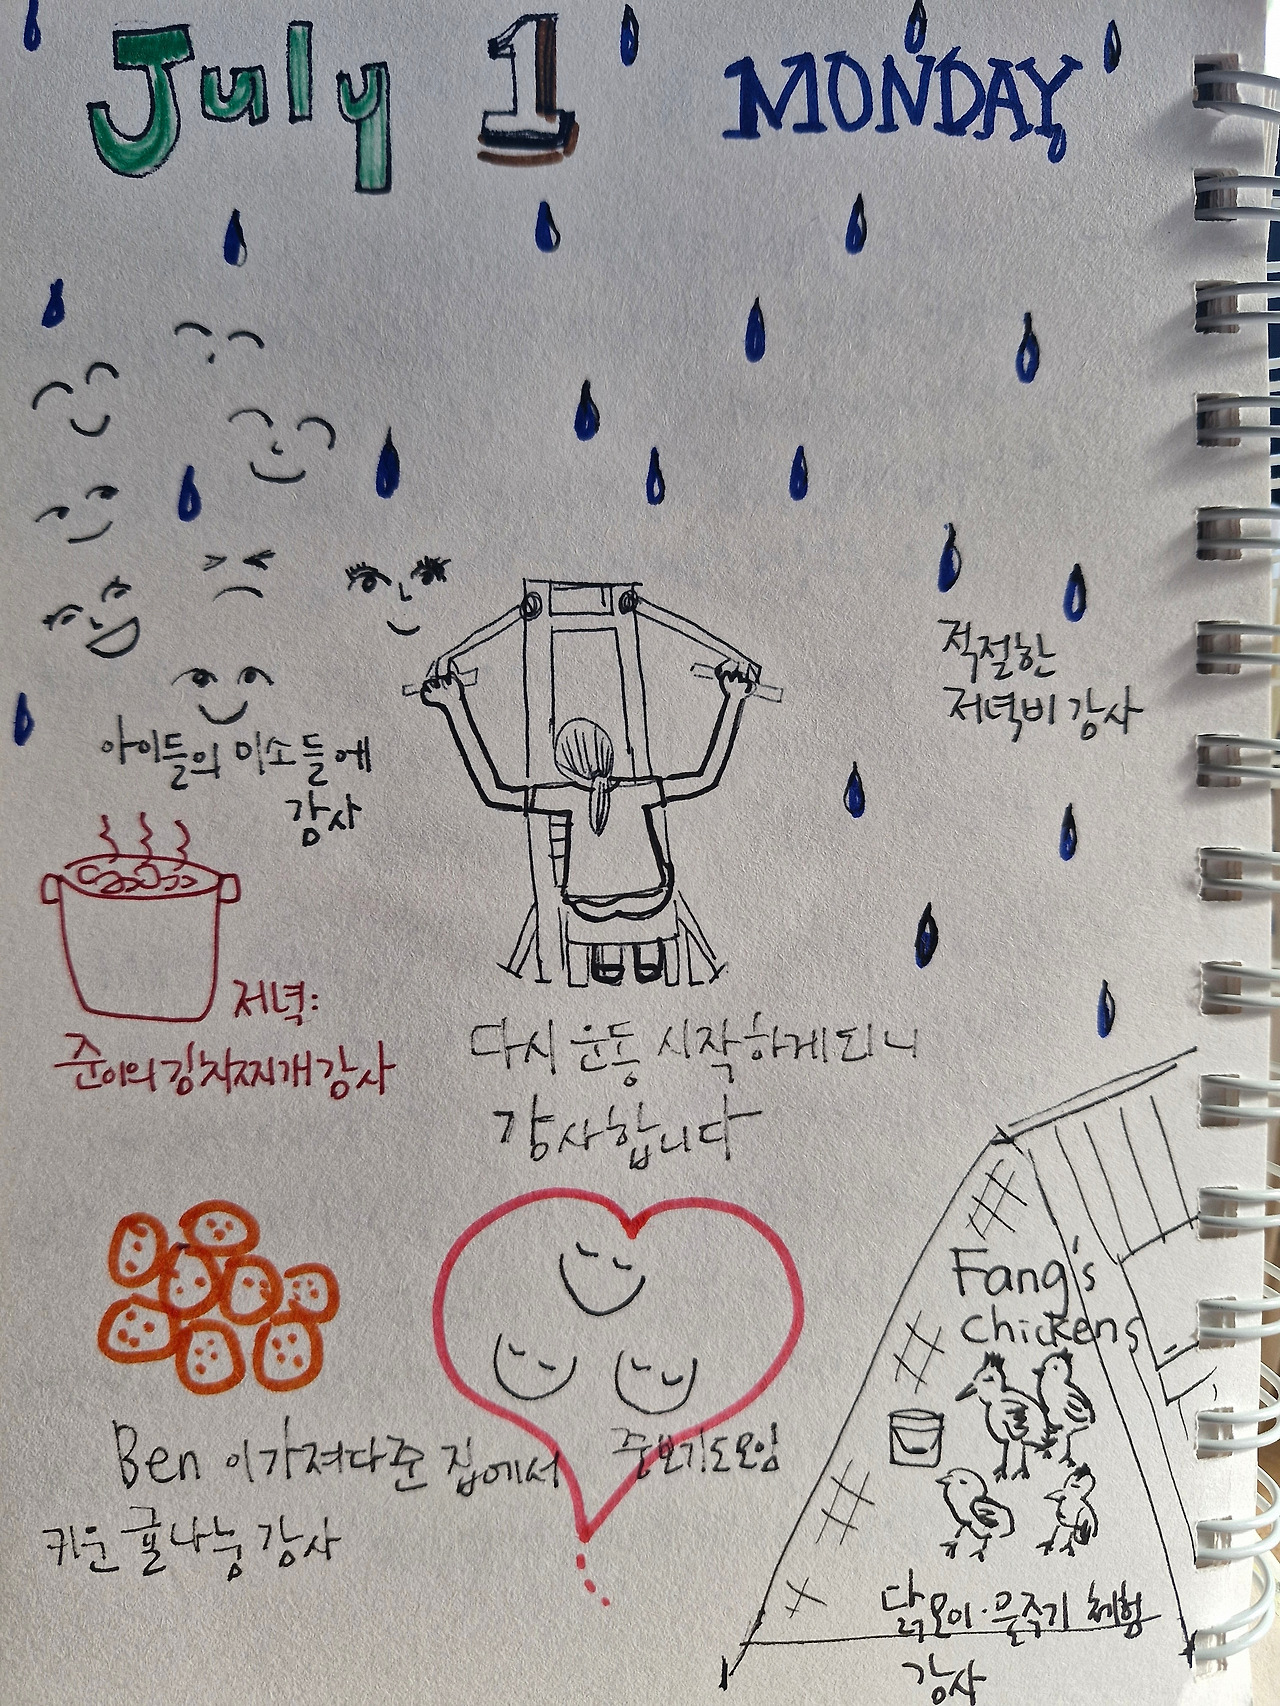 July 1 MONDAY
적절한
저녁비 감사
아이들의 미소들에
감사
저녁:
준이의 김치찌개 감사
다시 운동 시작하게되니
감사합니다
Fang's
chickens
Ben이 가져다준 집에서
키운 귤나눔 감사
중보기도모임
닭모이·물주기 체험
감사